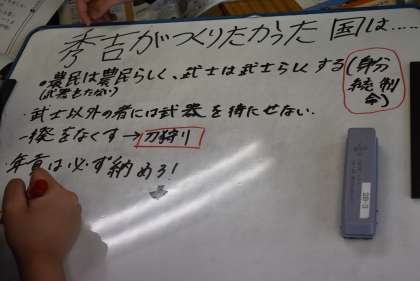 秀吉がつくりたかった国は……
•農民は農民らしく、武士は武士らしくする(身分統制令)
(武器をもたない)
・武士以外の者には武器を持たせない。
一揆をなくす→刀狩り
・年貢は必ず納めろ!